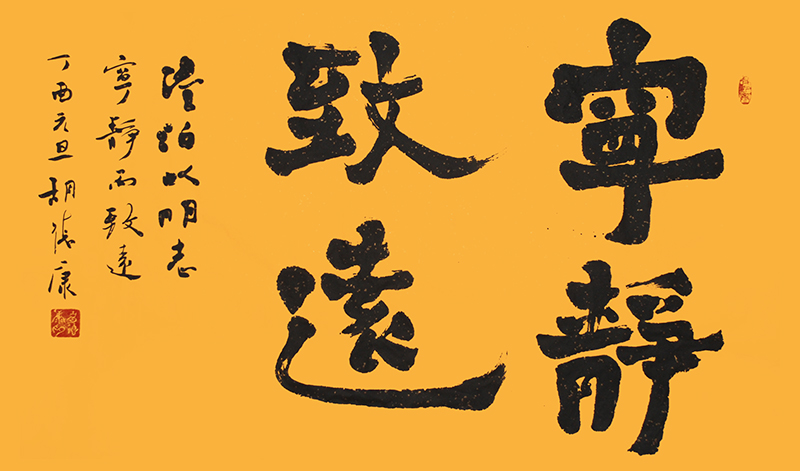 寧靜
致遠
澹泊以明志
寧靜而致遠
丁酉元旦 胡德康